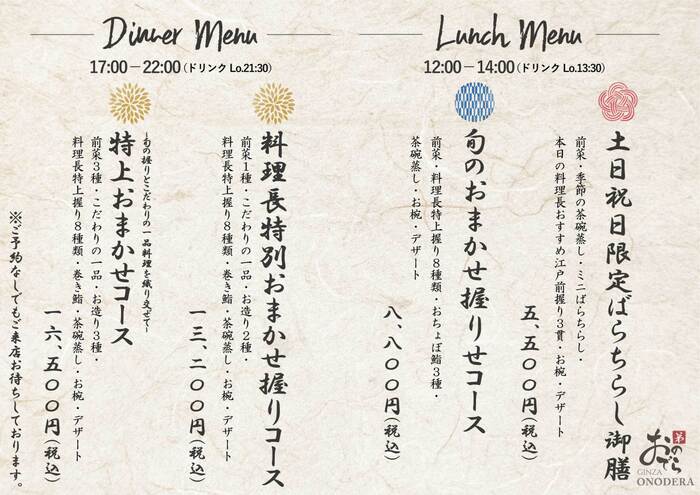 Dinner Menu
17:00－22:00(ドリンクLo.21:30)
Lunch Menu
12:00－14:00(ドリンクLo.13:30)
土日祝日限定ばらちらし御膳
前菜・季節の茶碗蒸し・ミニばらちらし・
本日の料理長おすすめ江戸前握り3貫・お椀・デザート
五、五〇〇円(税込)
旬のおまかせ握りせコース
前菜・料理長特上握り8種類・おちょぼ鮨3種・
茶碗蒸し・お椀・デザート
八、八〇〇円(税込)
料理長特別おまかせ握りコース
前菜1種・こだわりの一品・お造り2種・
料理長特上握り8種類・巻き鮨・茶碗蒸し・お椀・デザート
一三、二〇〇円(税込)
~旬の握りとこだわりの一品料理を織り交ぜて~
特上おまかせコース
前菜3種・こだわりの一品・お造り3種・
料理長特上握り8種類・巻き鮨・茶碗蒸し・お椀・デザート
一六、五〇〇円(税込)
※ご予約なしでもご来店お待ちしております。
おのでら
GINZA
ONODERA